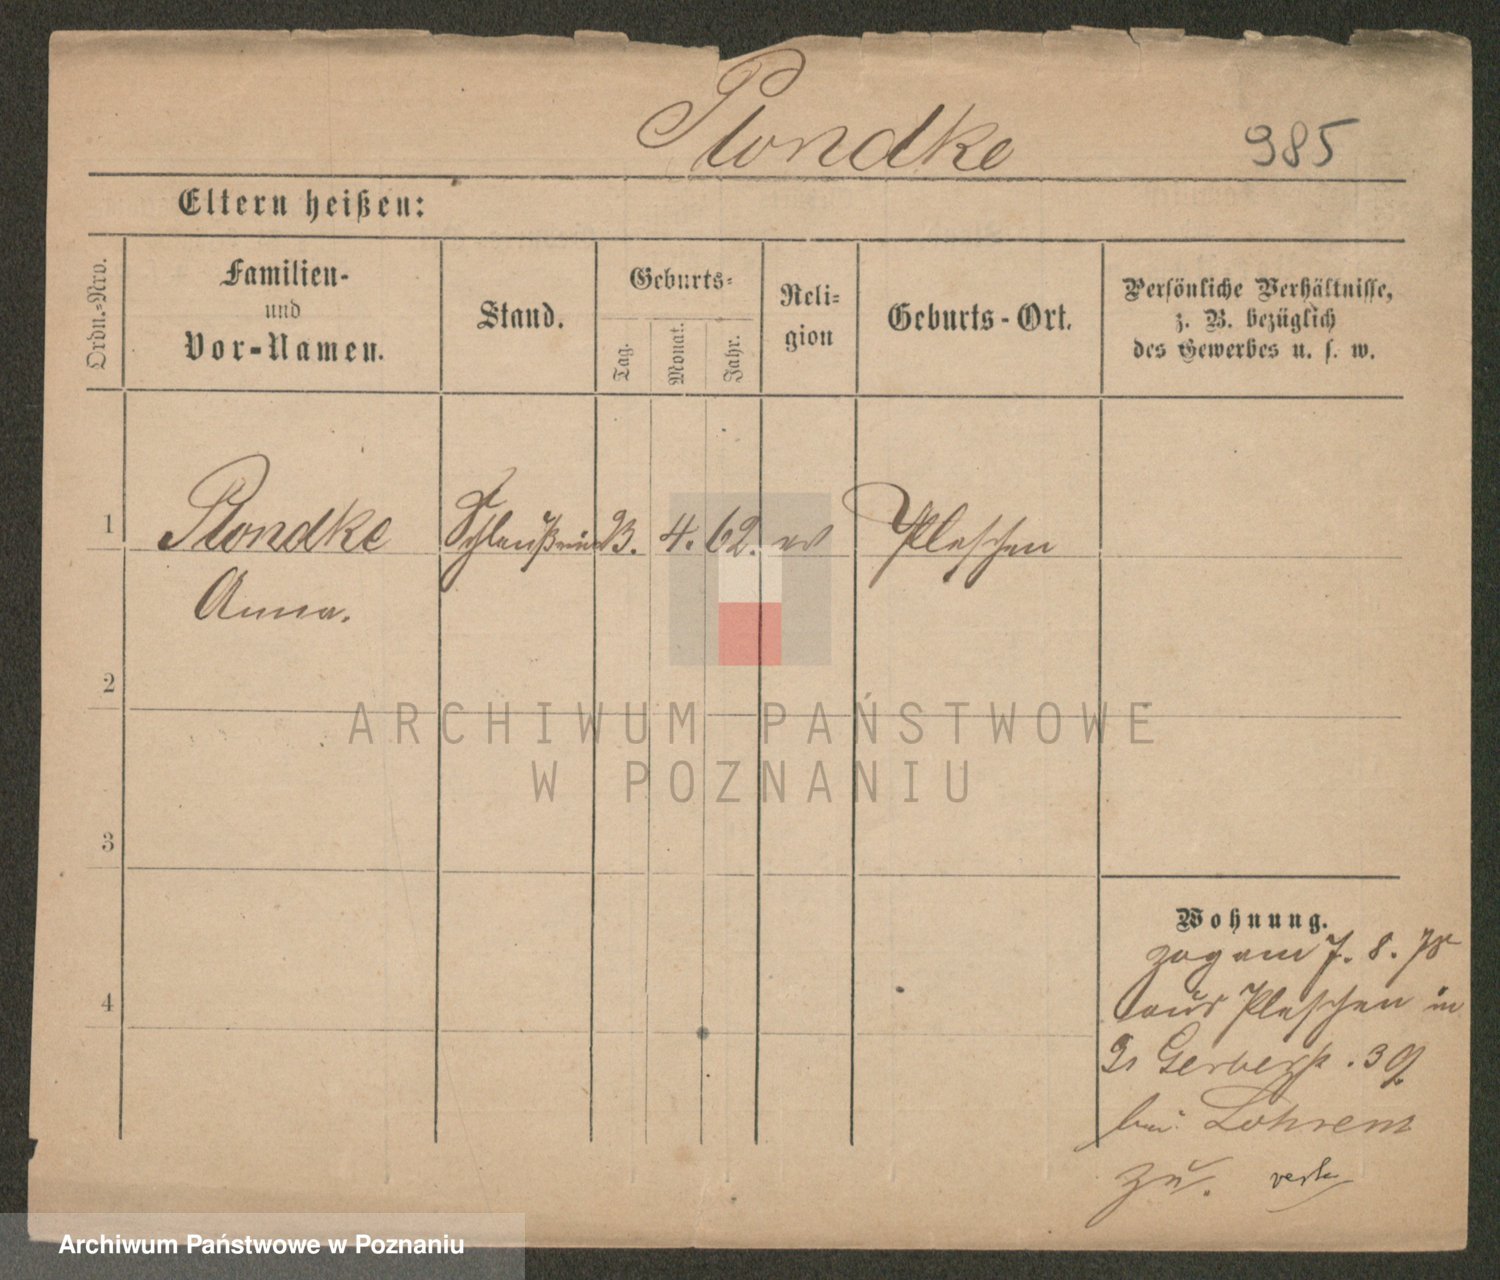 Plondke 985
Eltern heißen:
Ordn.-Nro.
Familien-
und
Vor-Namen.
Stand.
Geburts-
Tag.
Monat.
Jahr.
Reli-
gion
Geburts-Ort.
Persönliche Verhältnisse,
z. B. bezüglich
des Gewerbes u. s. w.
1 Plondke 23. 4. 62. ev Pleschen
Anna.
2
ARCHIWUM PAŃSTWOWE
W POZNANIU
3
Wohnung.
zog am 7. 8. 78
aus Pleschen in
4
Gerberst. 39
bei Lohrenz
zu.
Archiwum Państwowe w Poznaniu